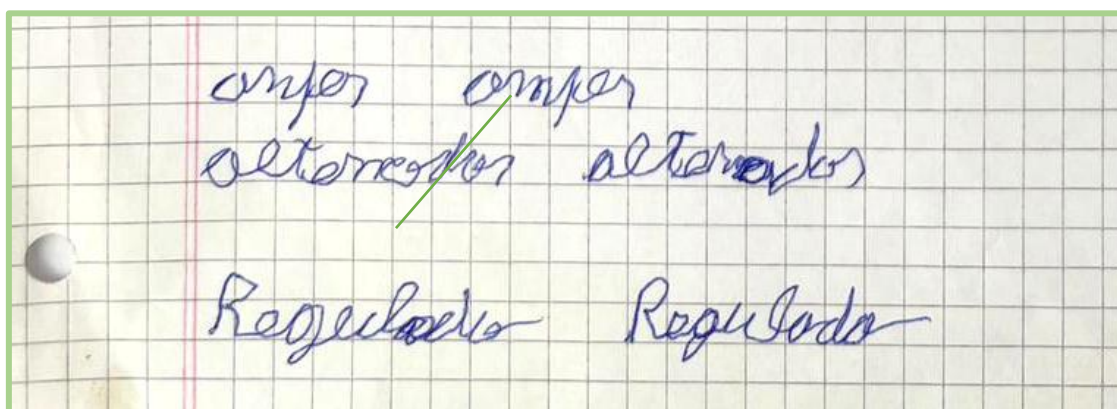 amper amper
alternador alternador
Regulador Regulador